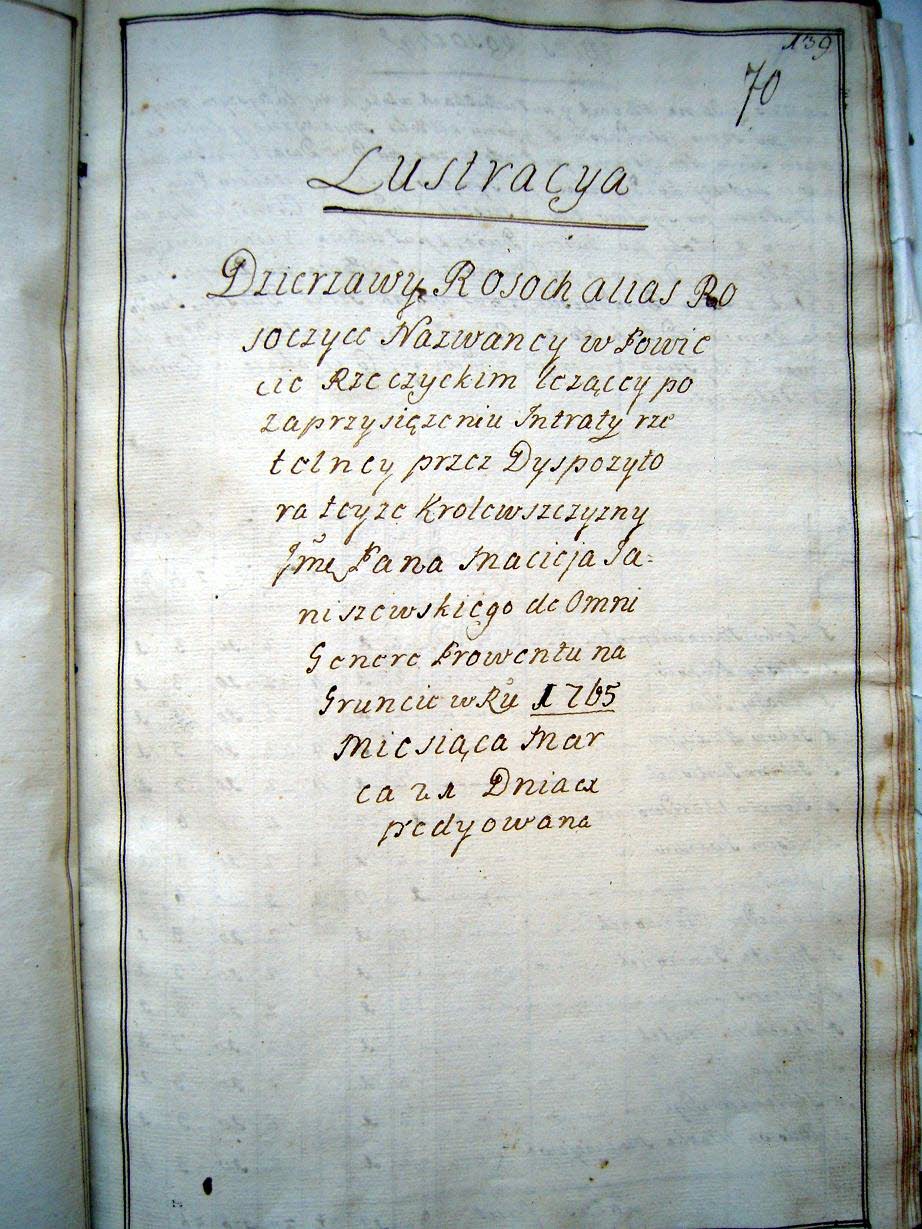 139
70
Lustracya
Dzierzawy Rosoch alias Ro
soczyce Nazwaney w Powie
cie Rzeczyckim leżącey po
zaprzysiężeniu Intraty rze
telney przez Dyspozyto
ra teyze Krolewszczyzny
Jmę Pana Macieja Ja-
niszewskiego de Omni
Genere Prowentu na
Gruncie w Rũ 1765
Miesiąca Mar
ca 21 Dniaex
predyowana